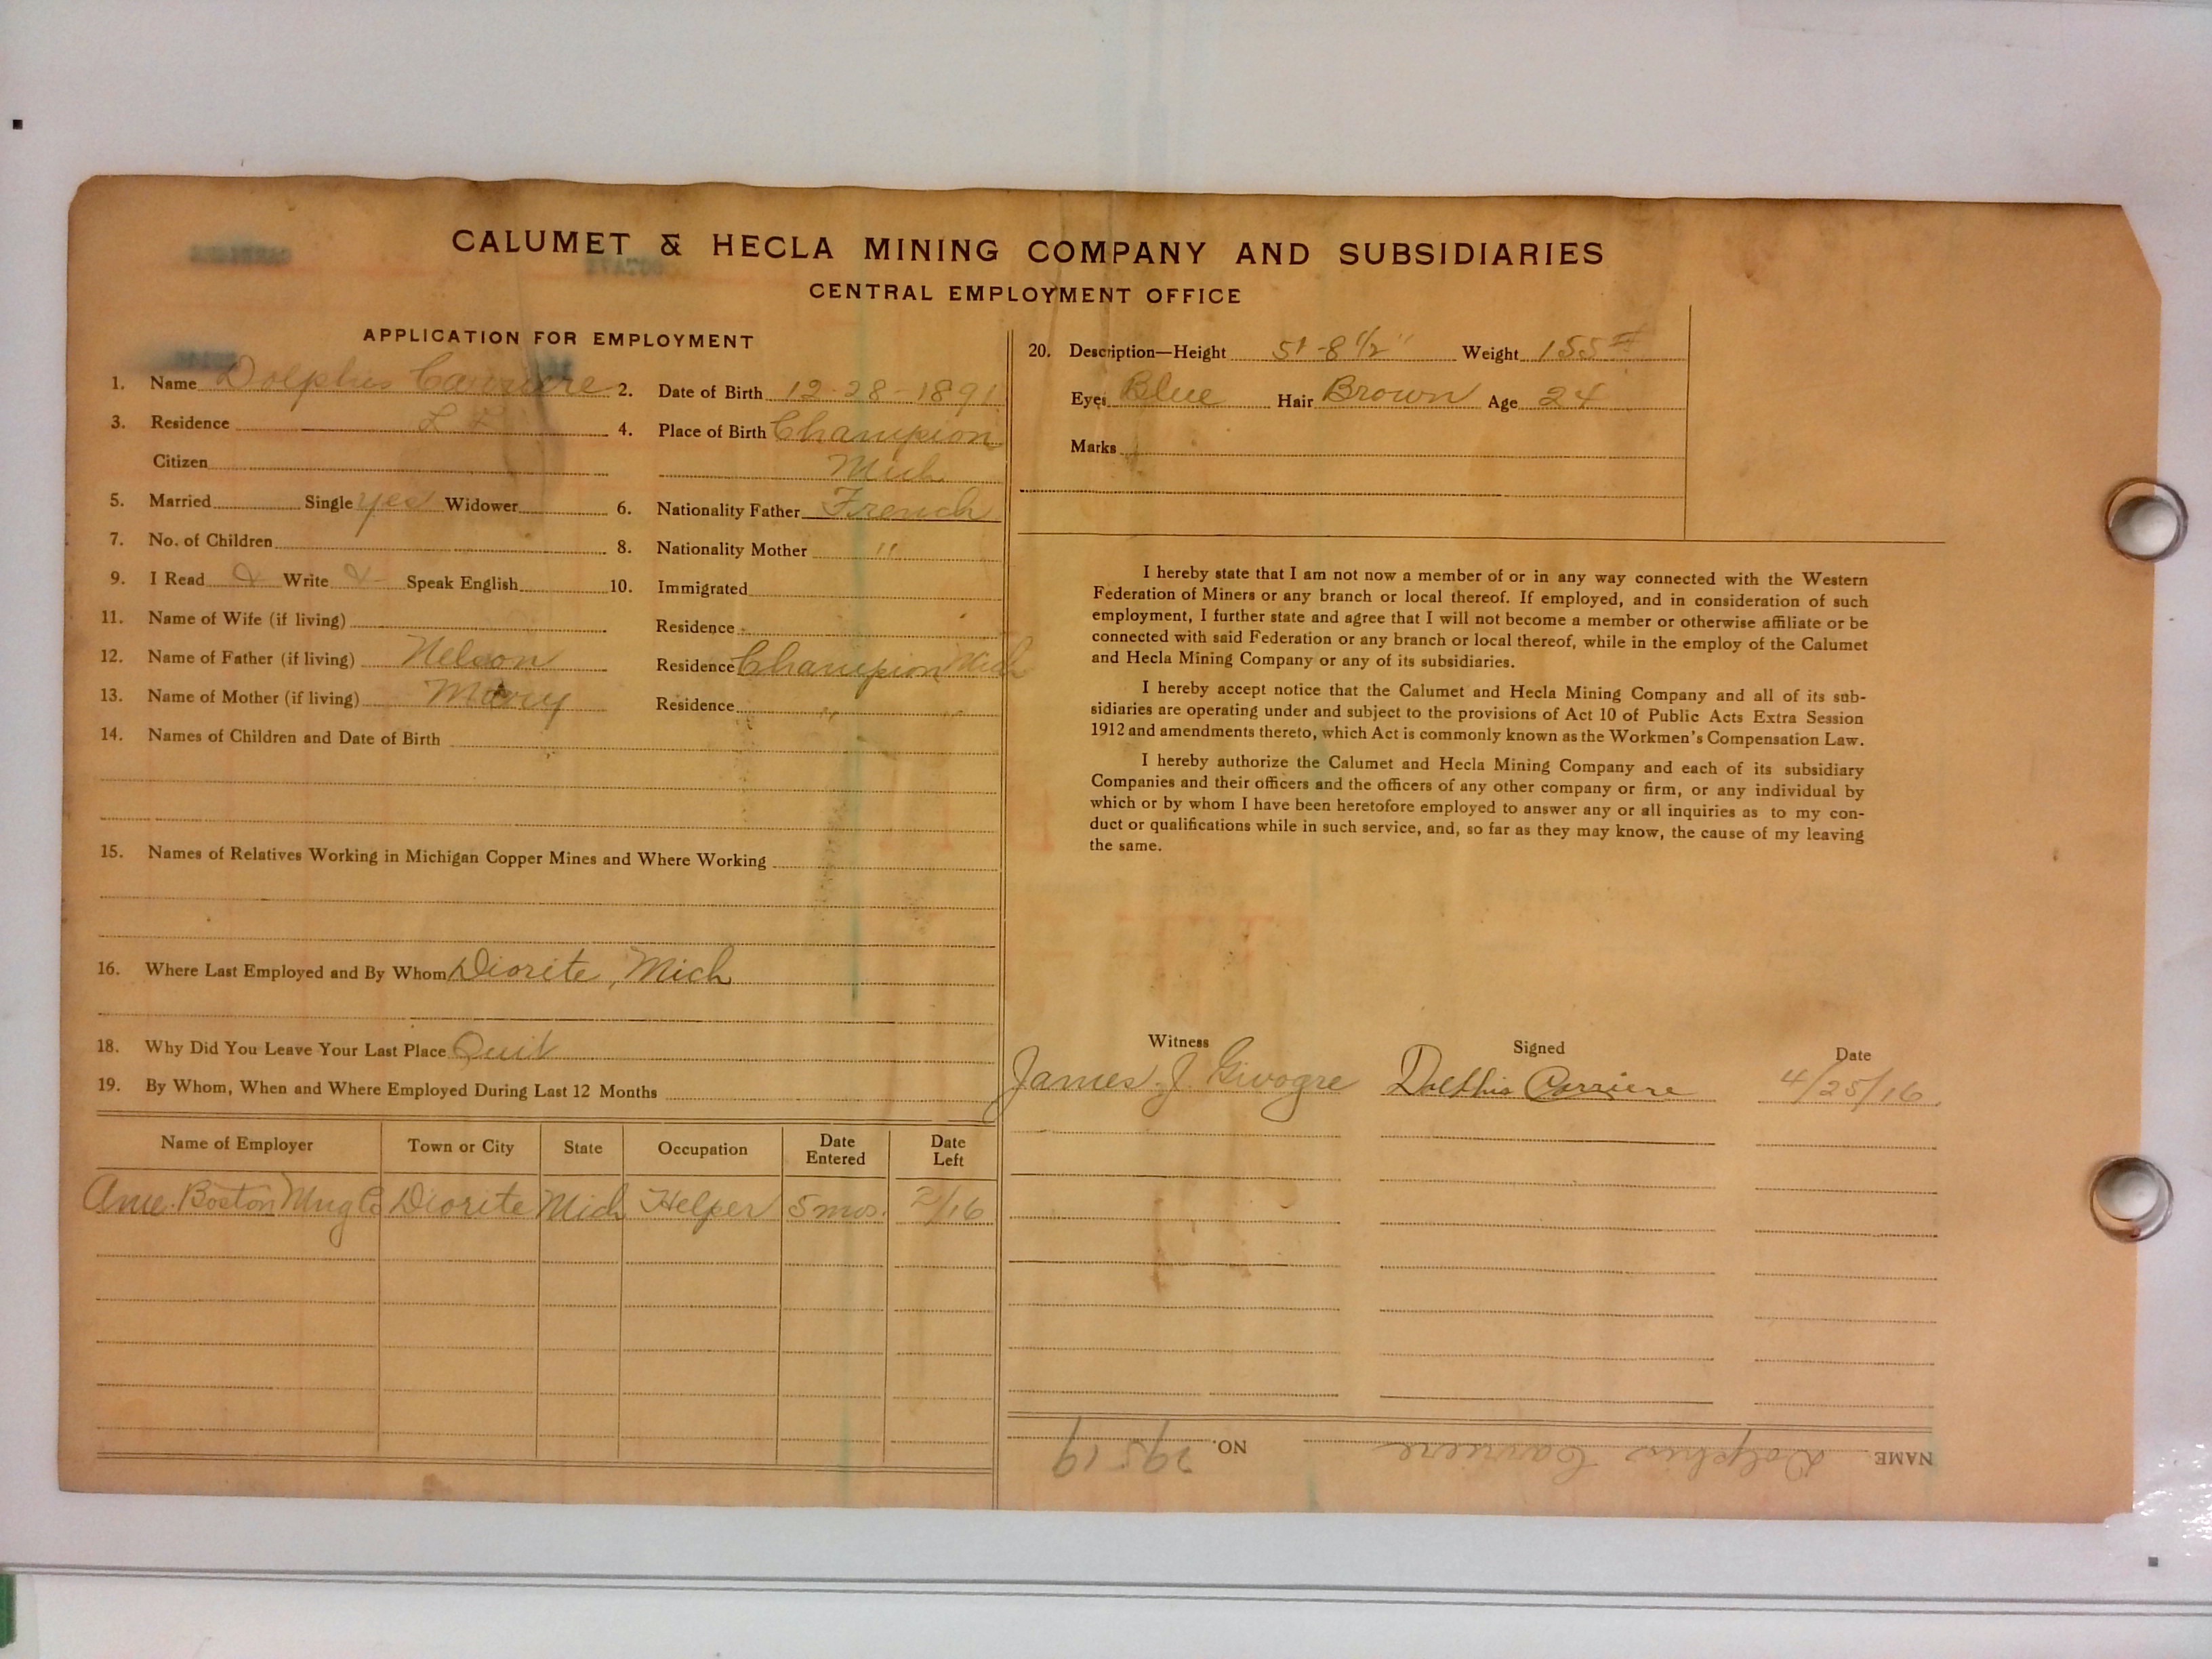 CALUMET & HECLA MINING COMPANY AND SUBSIDIARIES
CENTRAL EMPLOYMENT OFFICE
APPLICATION FOR EMPLOYMENT
1. Name Dolphus Carriere 2. Date of Birth 12-28-1891
3. Residence L L 4. Place of Birth Champion
Citizen Mich
5. Married Single yes Widower 6. Nationality Father French
7. No. of Children 8. Nationality Mother "
9. I Read Write Speak English 10. Immigrated
11. Name of Wife (if living) Residence
12. Name of Father (if living) Nelson Residence Champion Mich
13. Name of Mother (if living) Mary Residence " "
14. Names of Children and Date of Birth
15. Names of Relatives Working in Michigan Copper Mines and Where Working
16. Where Last Employed and By Whom Diorite, Mich
18. Why Did You Leave Your Last Place Quit
19. By Whom, When and Where Employed During Last 12 Months
Name of Employer Town or City State Occupation Date Entered Date Left
Ame. Boston Mng Co Diorite Mich Helper 5 mos. 2/16
20. Description—Height 5'-8 1/2" Weight 155 #
Eyes Blue Hair Brown Age 24
Marks
I hereby state that I am not now a member of or in any way connected with the Western
Federation of Miners or any branch or local thereof. If employed, and in consideration of such
employment, I further state and agree that I will not become a member or otherwise affiliate or be
connected with said Federation or any branch or local thereof, while in the employ of the Calumet
and Hecla Mining Company or any of its subsidiaries.
I hereby accept notice that the Calumet and Hecla Mining Company and all of its sub-
sidiaries are operating under and subject to the provisions of Act 10 of Public Acts Extra Session
1912 and amendments thereto, which Act is commonly known as the Workmen's Compensation Law.
I hereby authorize the Calumet and Hecla Mining Company and each of its subsidiary
Companies and their officers and the officers of any other company or firm, or any individual by
which or by whom I have been heretofore employed to answer any or all inquiries as to my con-
duct or qualifications while in such service, and, so far as they may know, the cause of my leaving
the same.
Witness Signed Date
James J Carriere 4/25/16
NAME Dolphus Carriere NO. 29519